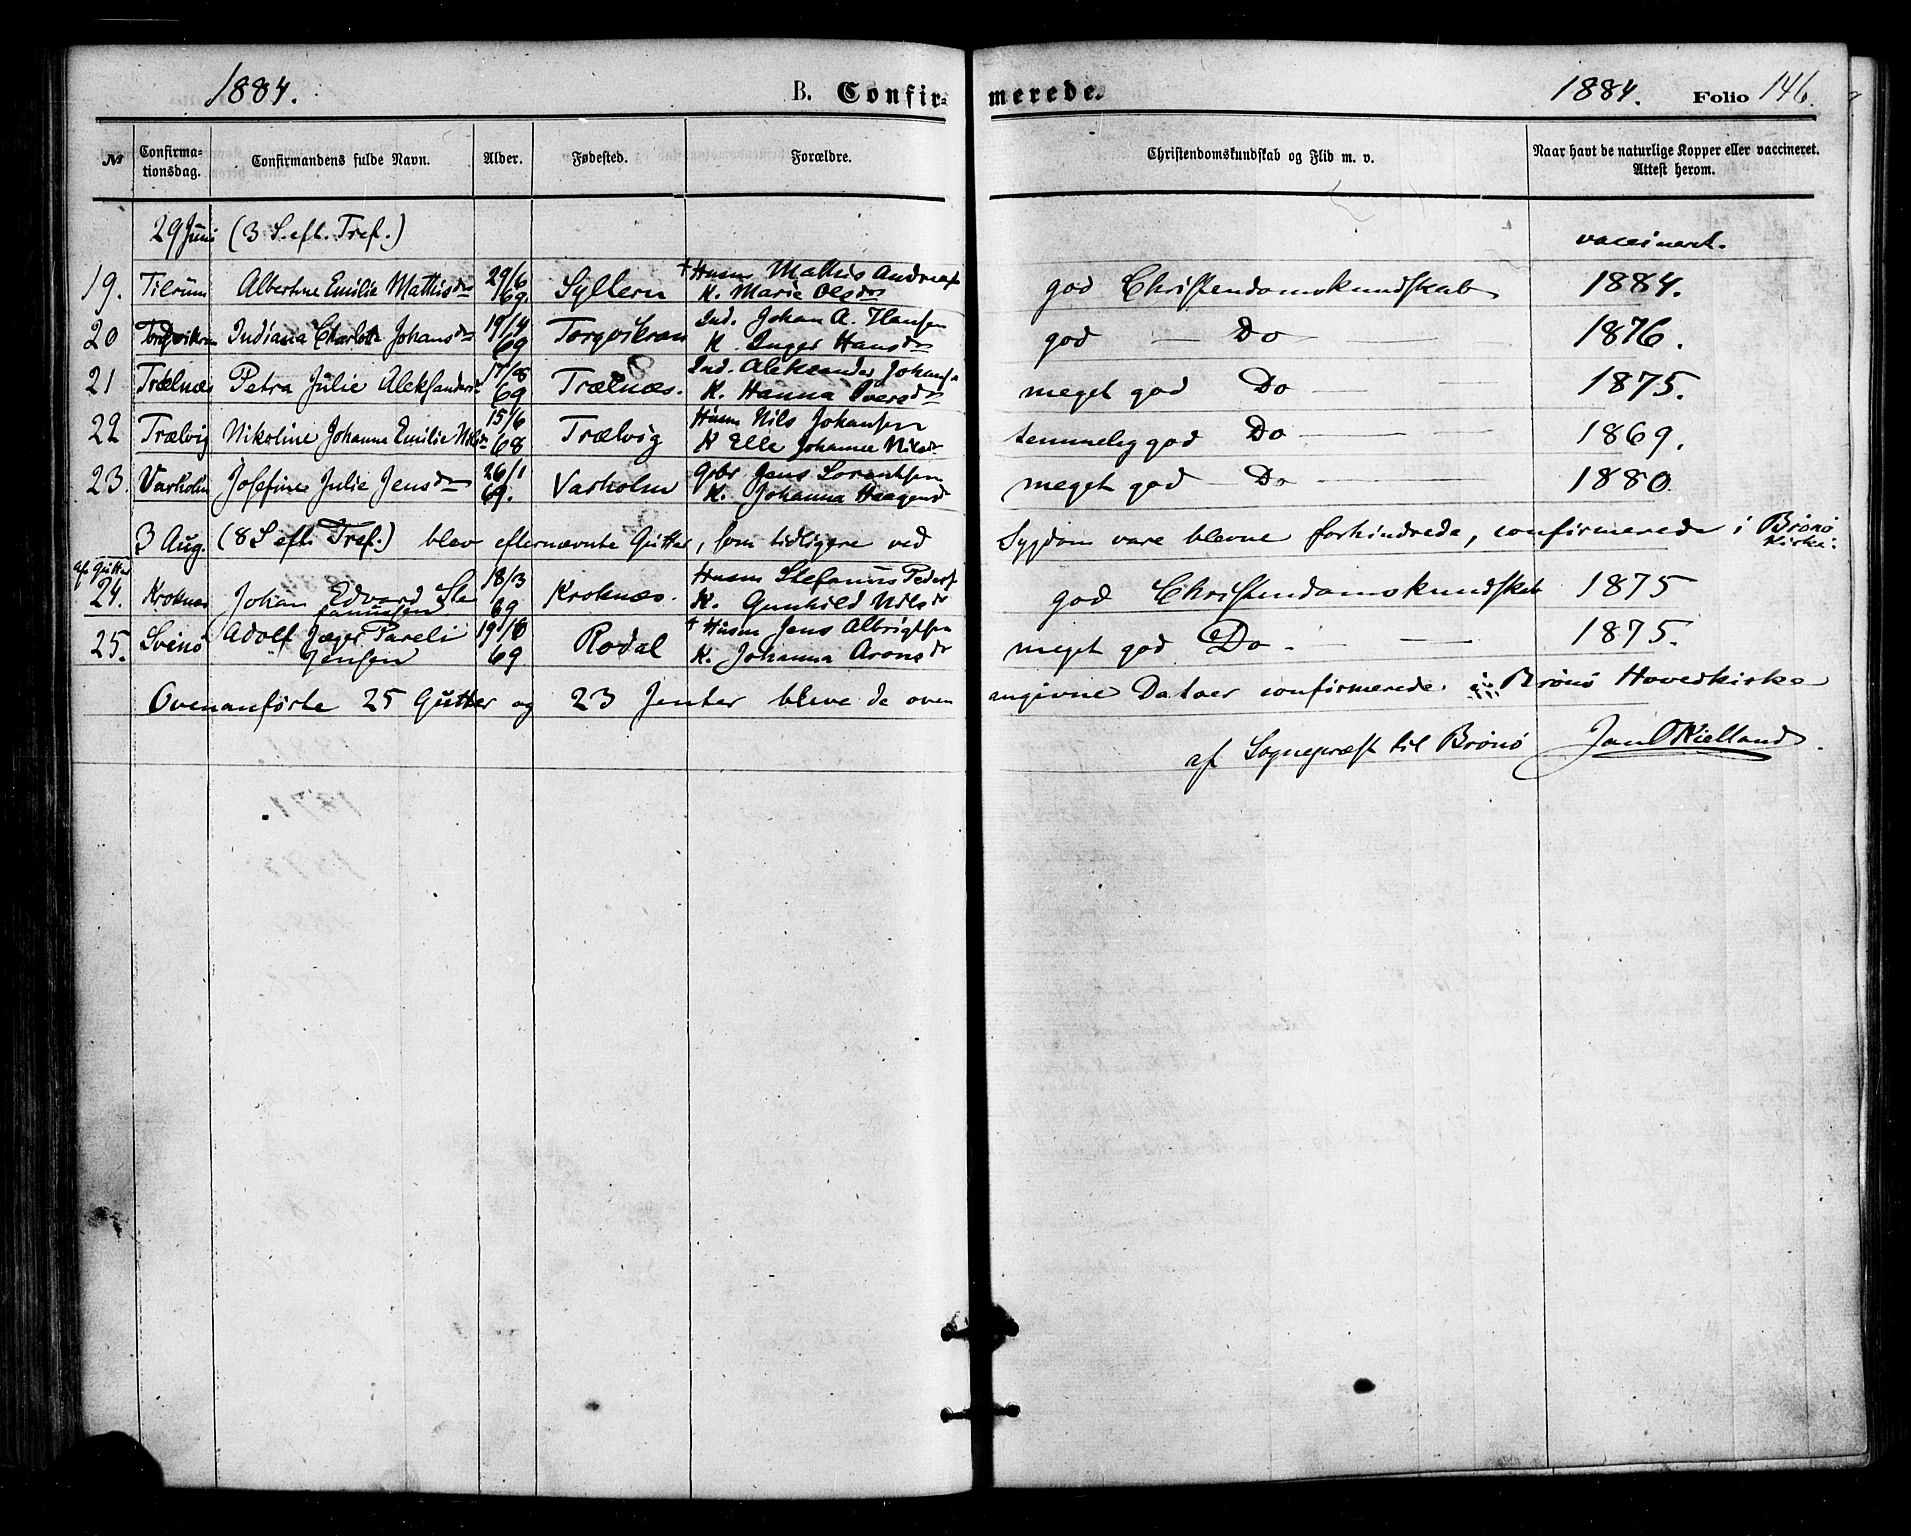 1884. B. Confir- merede. 1884. Folio 146.
№ Confirma- tionsdag. Confirmandens fulde Navn. Alder. Fødested. Forældre. Christendomskundskab og Flid m. v. Naar havt de naturlige Kopper eller vaccineret. Attest herom.
29 Juni (3 S. eft. Tref.) vaccineret.
19. Tilrüm Albertine Emilie Mathisdr 29/6 69. Syltern † Husm Mathis Andreas K. Marie Olsdr god Christendomskundskab 1884.
20 Torgvikran Indiana Charlotte Johansdr 19/4 69 Torgvikran Ind. Johan A. Hansen K. Inger Hansdr god — Do — 1876.
21 Trælnæs Petra Julie Aleksandersd 17/8 69 Trælnæs. Ind. Aleksander Johansen K. Hanna Iversdr meget god Do — 1875.
22 Trælvig Nikoline Johanne Emilie Nilsdr 15/6 68 Trælvig Husm Nils Johansen K Elle Johanne Nilsdr temmelig god Do — 1869.
23. Varholm Josefine Julie Jensdr 26/1 69. Varholm Gbr Jens Lorentsen K. Johanna Haagensdr meget god Do — 1880.
3 Aug. (8 S eft. Tref.) blev efternævnte Gutter, som tidligere ved Sygdom vare blevne forhindrede, confirmerede i Brönö Kirke.
af Gutter
24. Kroknæs Johan Edvard Ste fanussen 18/3 69 Kroknæs. Husm Stefanus Peders K. Gunhild Nilsdr god Christendomskundskab 1875
25. Svinö Adolf Jæger Pareli Jensen 19/8 69 Rodal † Husm Jens Albrigtsen K. Johanna Aronsdr meget god Do. — 1875.
Ovenanförte 25 Gutter og 23 Jenter bleve de oven angivne Datoer confirmerede i Brönö Hovedkirke
af Sognepræst til Brönö Jan O Kielland.